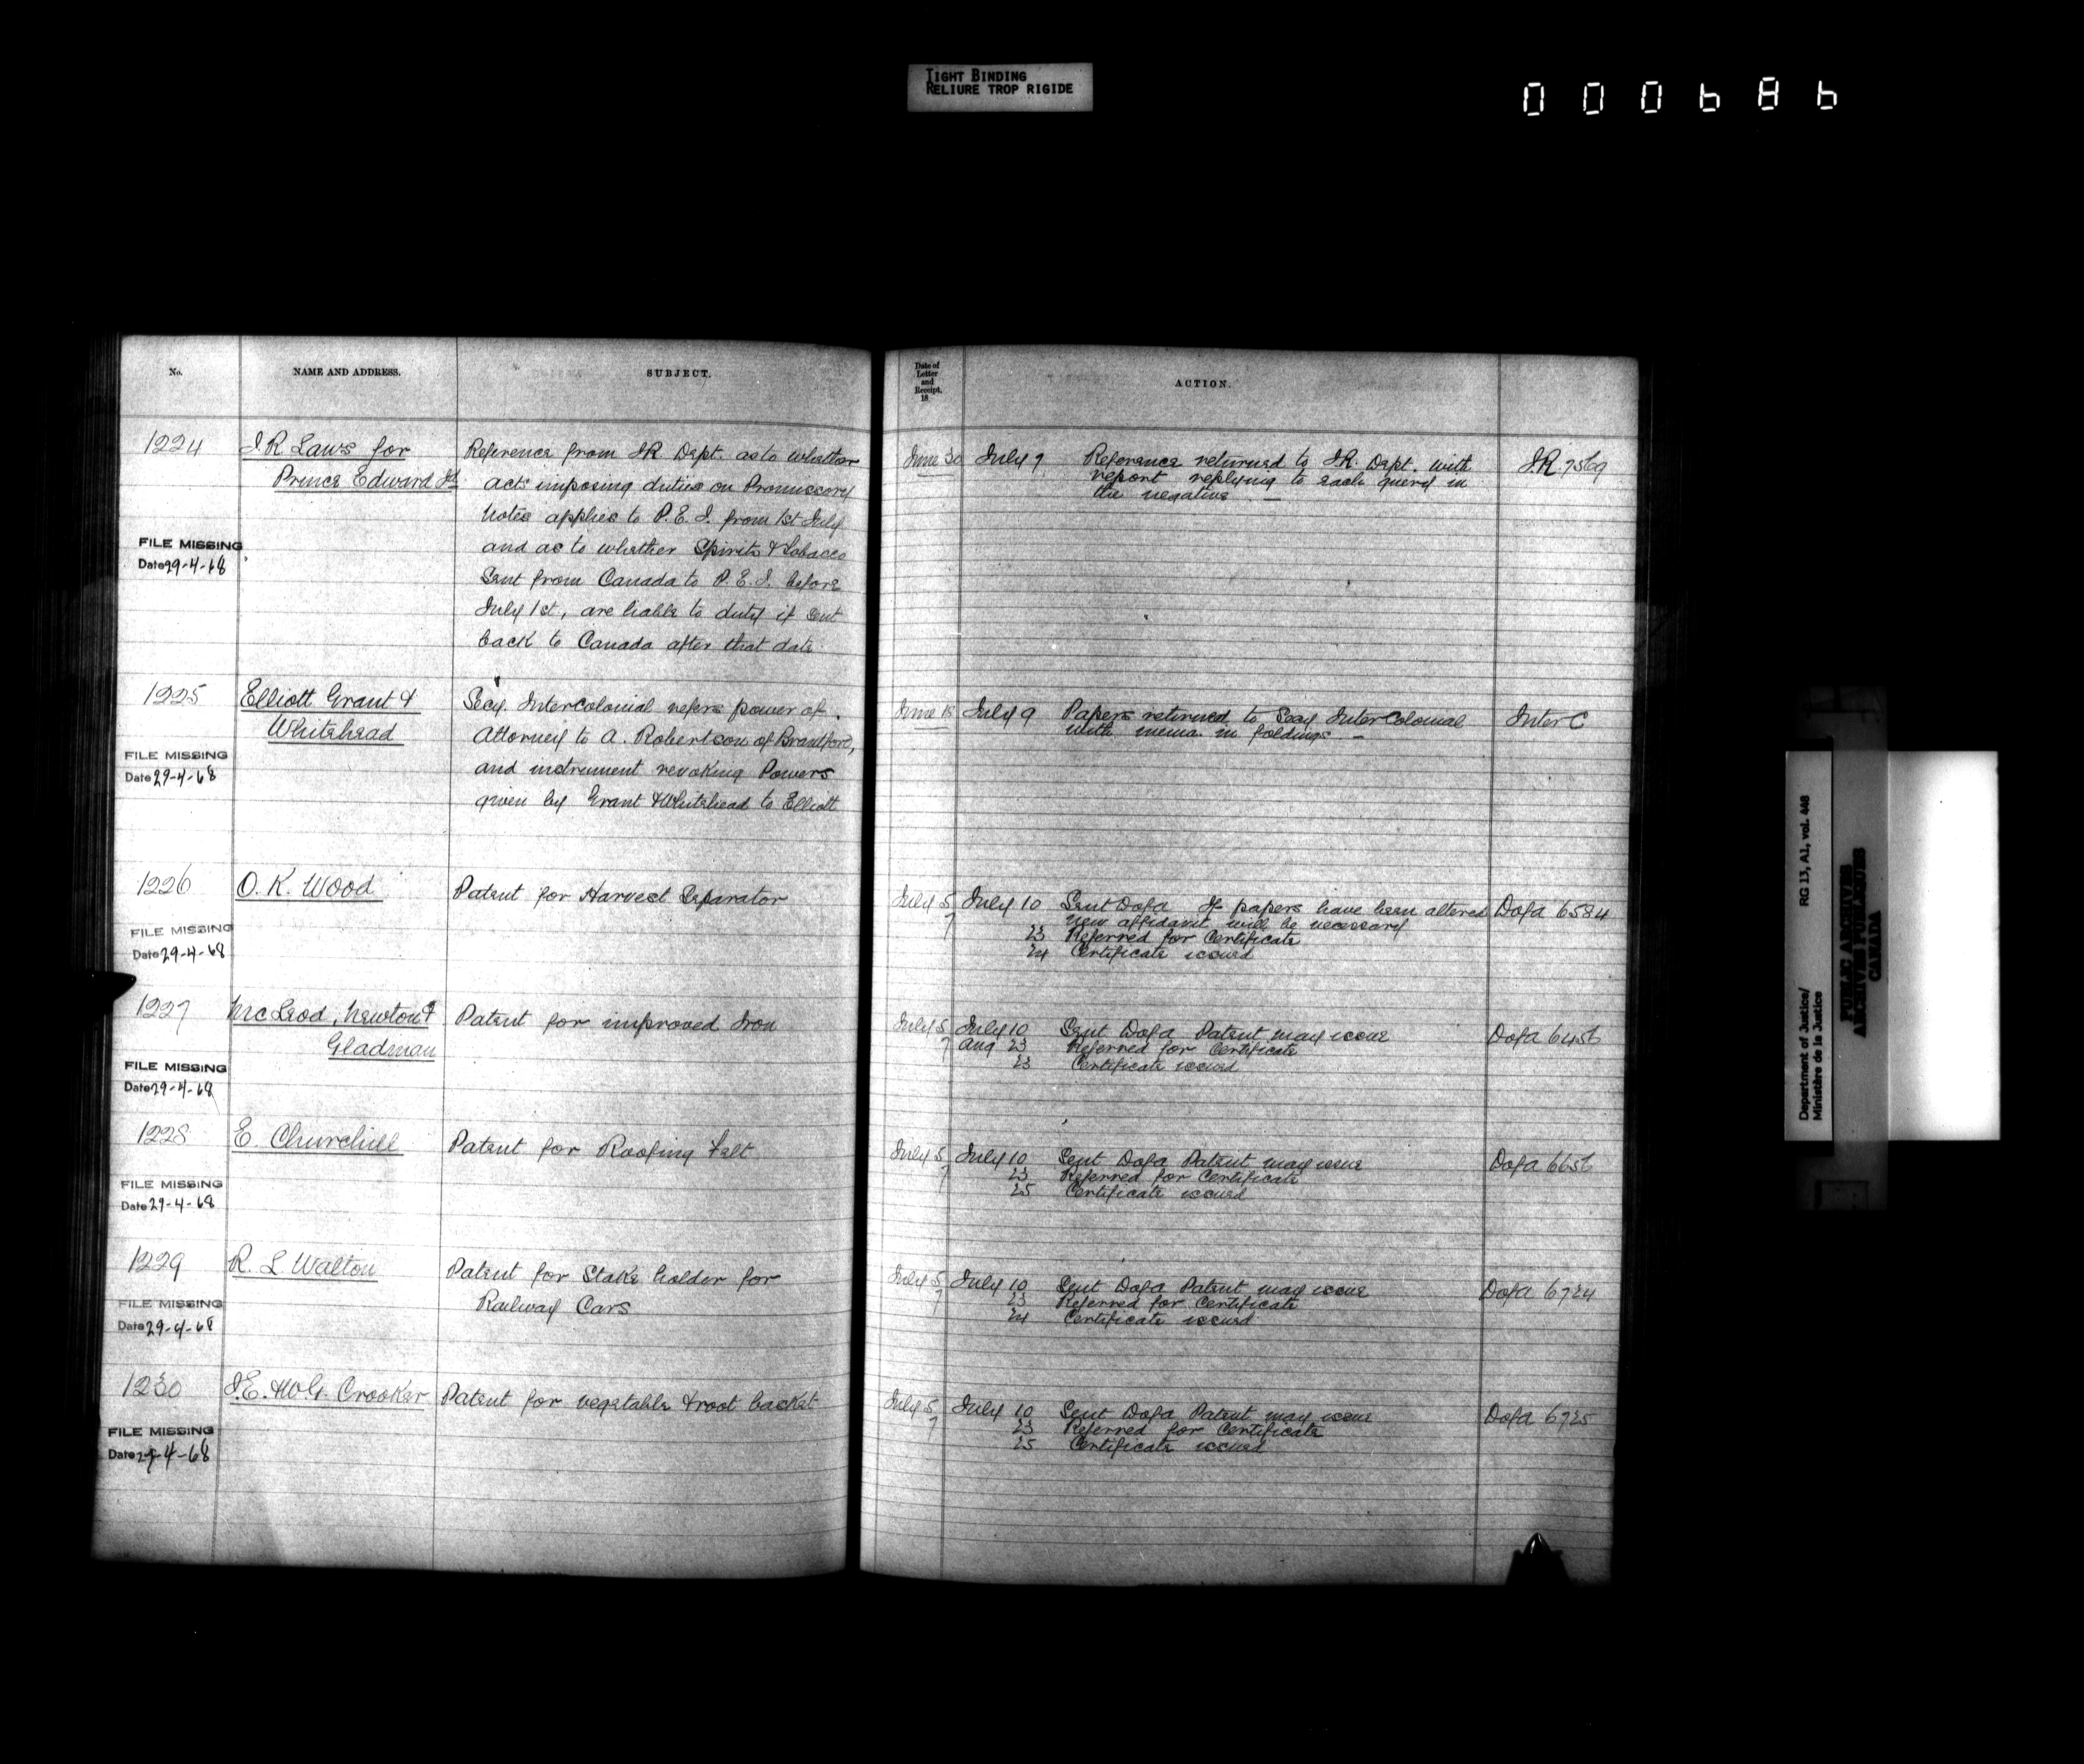 TIGHT BINDING
RELIURE TROP RIGIDE
000686
No.
NAME AND ADDRESS.
SUBJECT.
Date of
Letter
and
Receipt.
18
ACTION.
1224
I R Laws for
Prince Edward Id
FILE MISSING
Date 29-4-68
Reference from I R Dept. as to whether
acts imposing duties on Promissory
Notes applies to P. E. I. from 1st July
and as to whether Spirits & Tobacco
Sent from Canada to P. E. I. before
July 1st, are liable to duty if sent
back to Canada after that date
June 30
July 9
Reference returned to I.R. Dept. with
report replying to each query in
the negative. —
I.R. 7569
1225
Elliott Grant &
Whitehead
FILE MISSING
Date 29-4-68
Secy. Intercolonial refers power of
Attorney to A. Robertson of Brantford,
and instrument revoking Powers
given by Grant & Whitehead to Elliott
June 18
July 9
Papers returned to Secy InterColonial
with mema. in foldings —
Inter C
1226
O. K. Wood
FILE MISSING
Date 29-4-68
Patent for Harvest Separator
July 5
7
July 10 Sent Dofa If papers have been altered
new affidavit will be necessary
23 Referred for Certificate
24 Certificate issued
Dofa 6584
1227
McLeod, Newton &
Gladman
FILE MISSING
Date 29-4-68
Patent for improved Iron
July 5
7
July 10 Sent Dofa Patent may issue
Aug 23 Referred for Certificate
23 Certificate issued
Dofa 6456
1228
E. Churchill
FILE MISSING
Date 29-4-68
Patent for Roofing Felt
July 5
7
July 10 Sent Dofa Patent may issue
23 Referred for Certificate
25 Certificate issued
Dofa 6656
1229
R. L Walton
FILE MISSING
Date 29-4-68
Patent for Stake holder for
Railway Cars
July 5
7
July 10 Sent Dofa Patent may issue
23 Referred for Certificate
24 Certificate issued
Dofa 6724
1230
J. E. & W. G. Crooker
FILE MISSING
Date 29-4-68
Patent for vegetable & root basket
July 5
7
July 10 Sent Dofa Patent may issue
23 Referred for Certificate
25 Certificate issued
Dofa 6725
Department of Justice/
Ministère de la Justice
RG 13, A1, vol. 448
PUBLIC ARCHIVES
ARCHIVES PUBLIQUES
CANADA